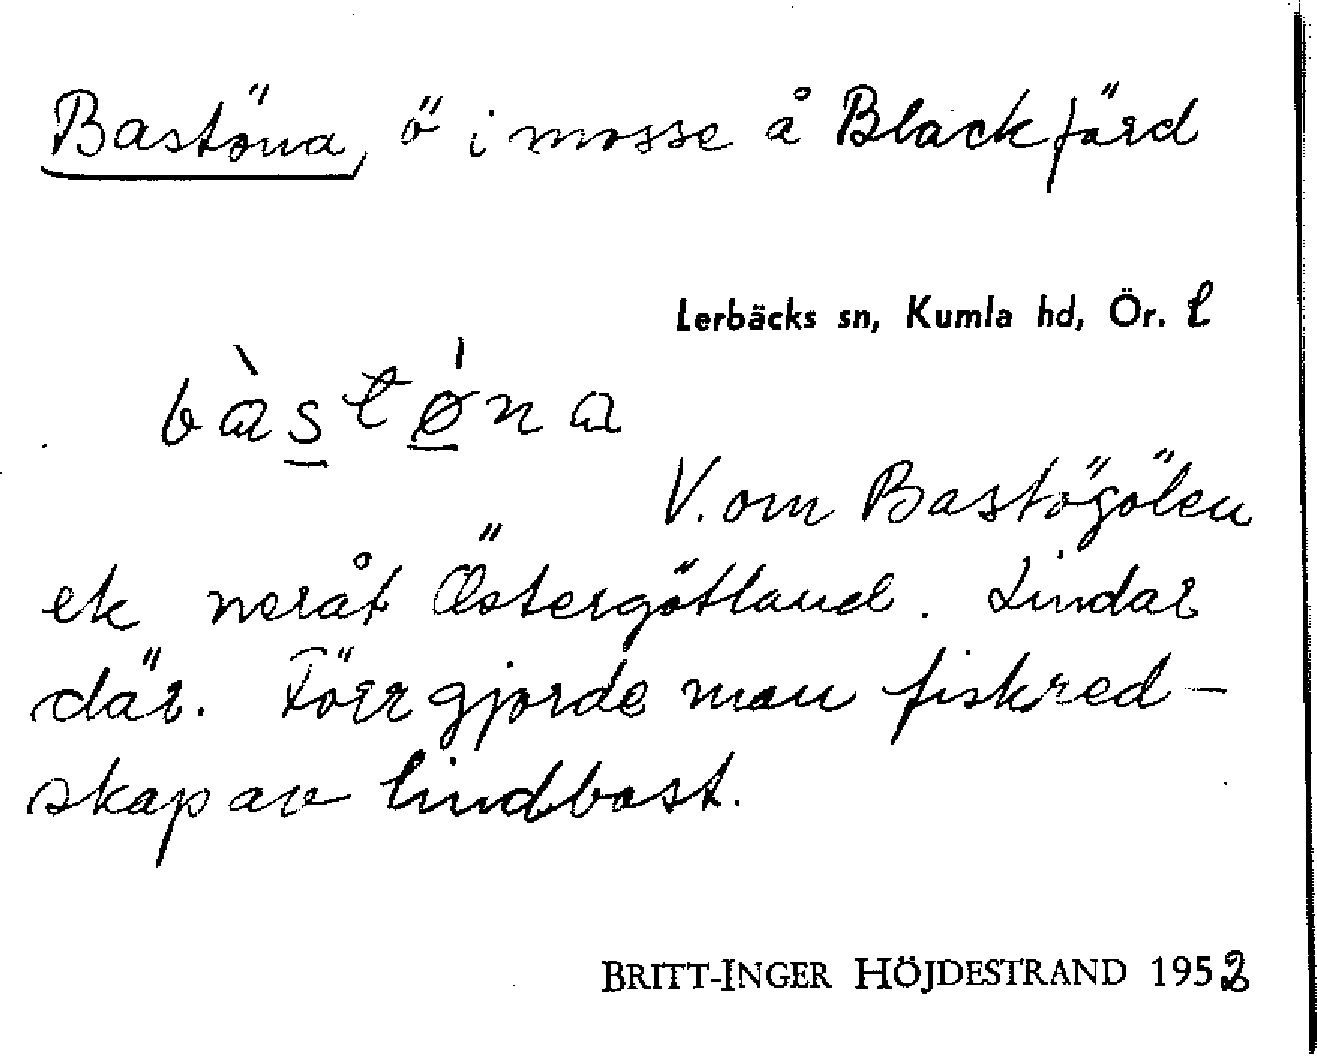 Bastöna, ö i mosse å Blackfärd
Lerbäcks sn, Kumla hd, Ör. l
bàstǿ̱na
V. om Bastögölen
ek neråt Östergötland. Lindar
där. Förr gjorde man fiskred-
skap av lindbast.
BRITT-INGER HÖJDESTRAND 1952